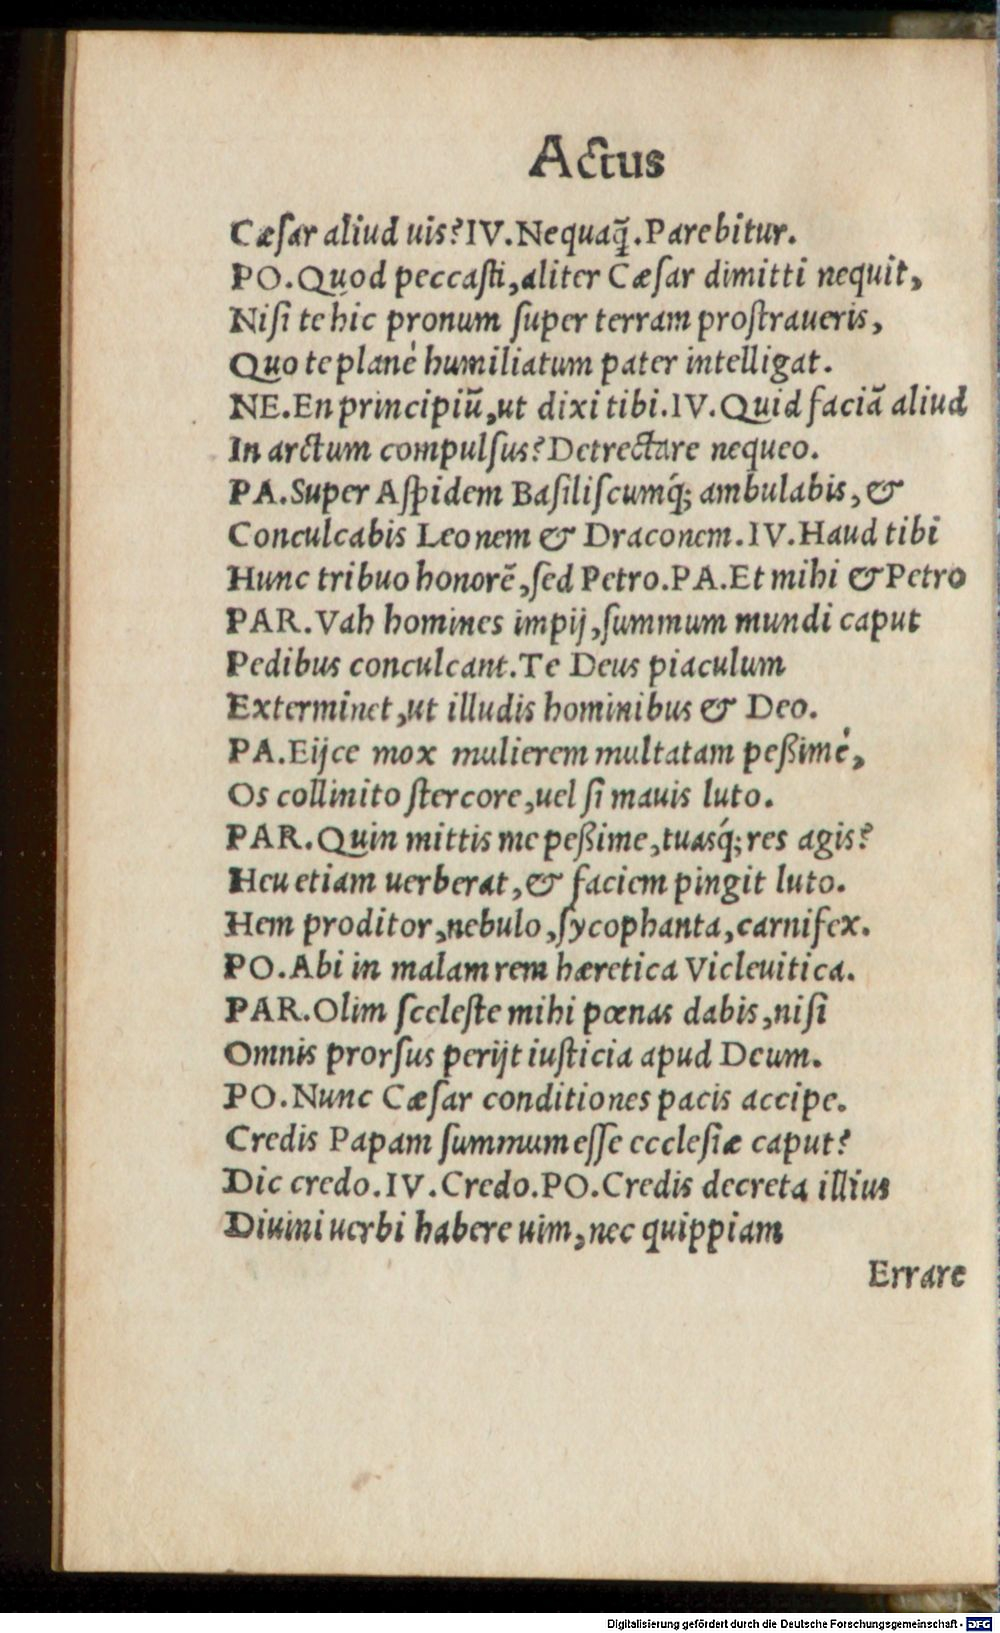 Actus
Cæſar aliud uis? IV. Nequaq̃. Parebitur.
PO. Quod peccaſti, aliter Cæſar dimitti nequit,
Niſi te hic pronum ſuper terram proſtraueris,
Quo te planè humiliatum pater intelligat.
NE. En principiũ, ut dixi tibi. IV. Quid faciã aliud
In arctum compulſus? Detrectare nequeo.
PA. Super Aſpidem Baſiliſcumq́; ambulabis, &
Conculcabis Leonem & Draconem. IV. Haud tibi
Hunc tribuo honorẽ, ſed Petro. PA. Et mihi & Petro
PAR. Vah homines impij, ſummum mundi caput
Pedibus conculcant. Te Deus piaculum
Exterminet, ut illudis hominibus & Deo.
PA. Eijce mox mulierem multatam peßimè,
Os collinito ſtercore, uel ſi mauis luto.
PAR. Quin mittis me peßime, tuasq́; res agis?
Heu etiam uerberat, & faciem pingit luto.
Hem proditor, nebulo, ſycophanta, carnifex.
PO. Abi in malam rem hæretica Vicleuitica.
PAR. Olim ſceleſte mihi pœnas dabis, niſi
Omnis prorſus perijt iuſticia apud Deum.
PO. Nunc Cæſar conditiones pacis accipe.
Credis Papam ſummum eſſe eccleſiæ caput?
Dic credo. IV. Credo. PO. Credis decreta illius
Diuini uerbi habere uim, nec quippiam
Errare
Digitalisierung gefördert durch die Deutsche Forschungsgemeinschaft - DFG